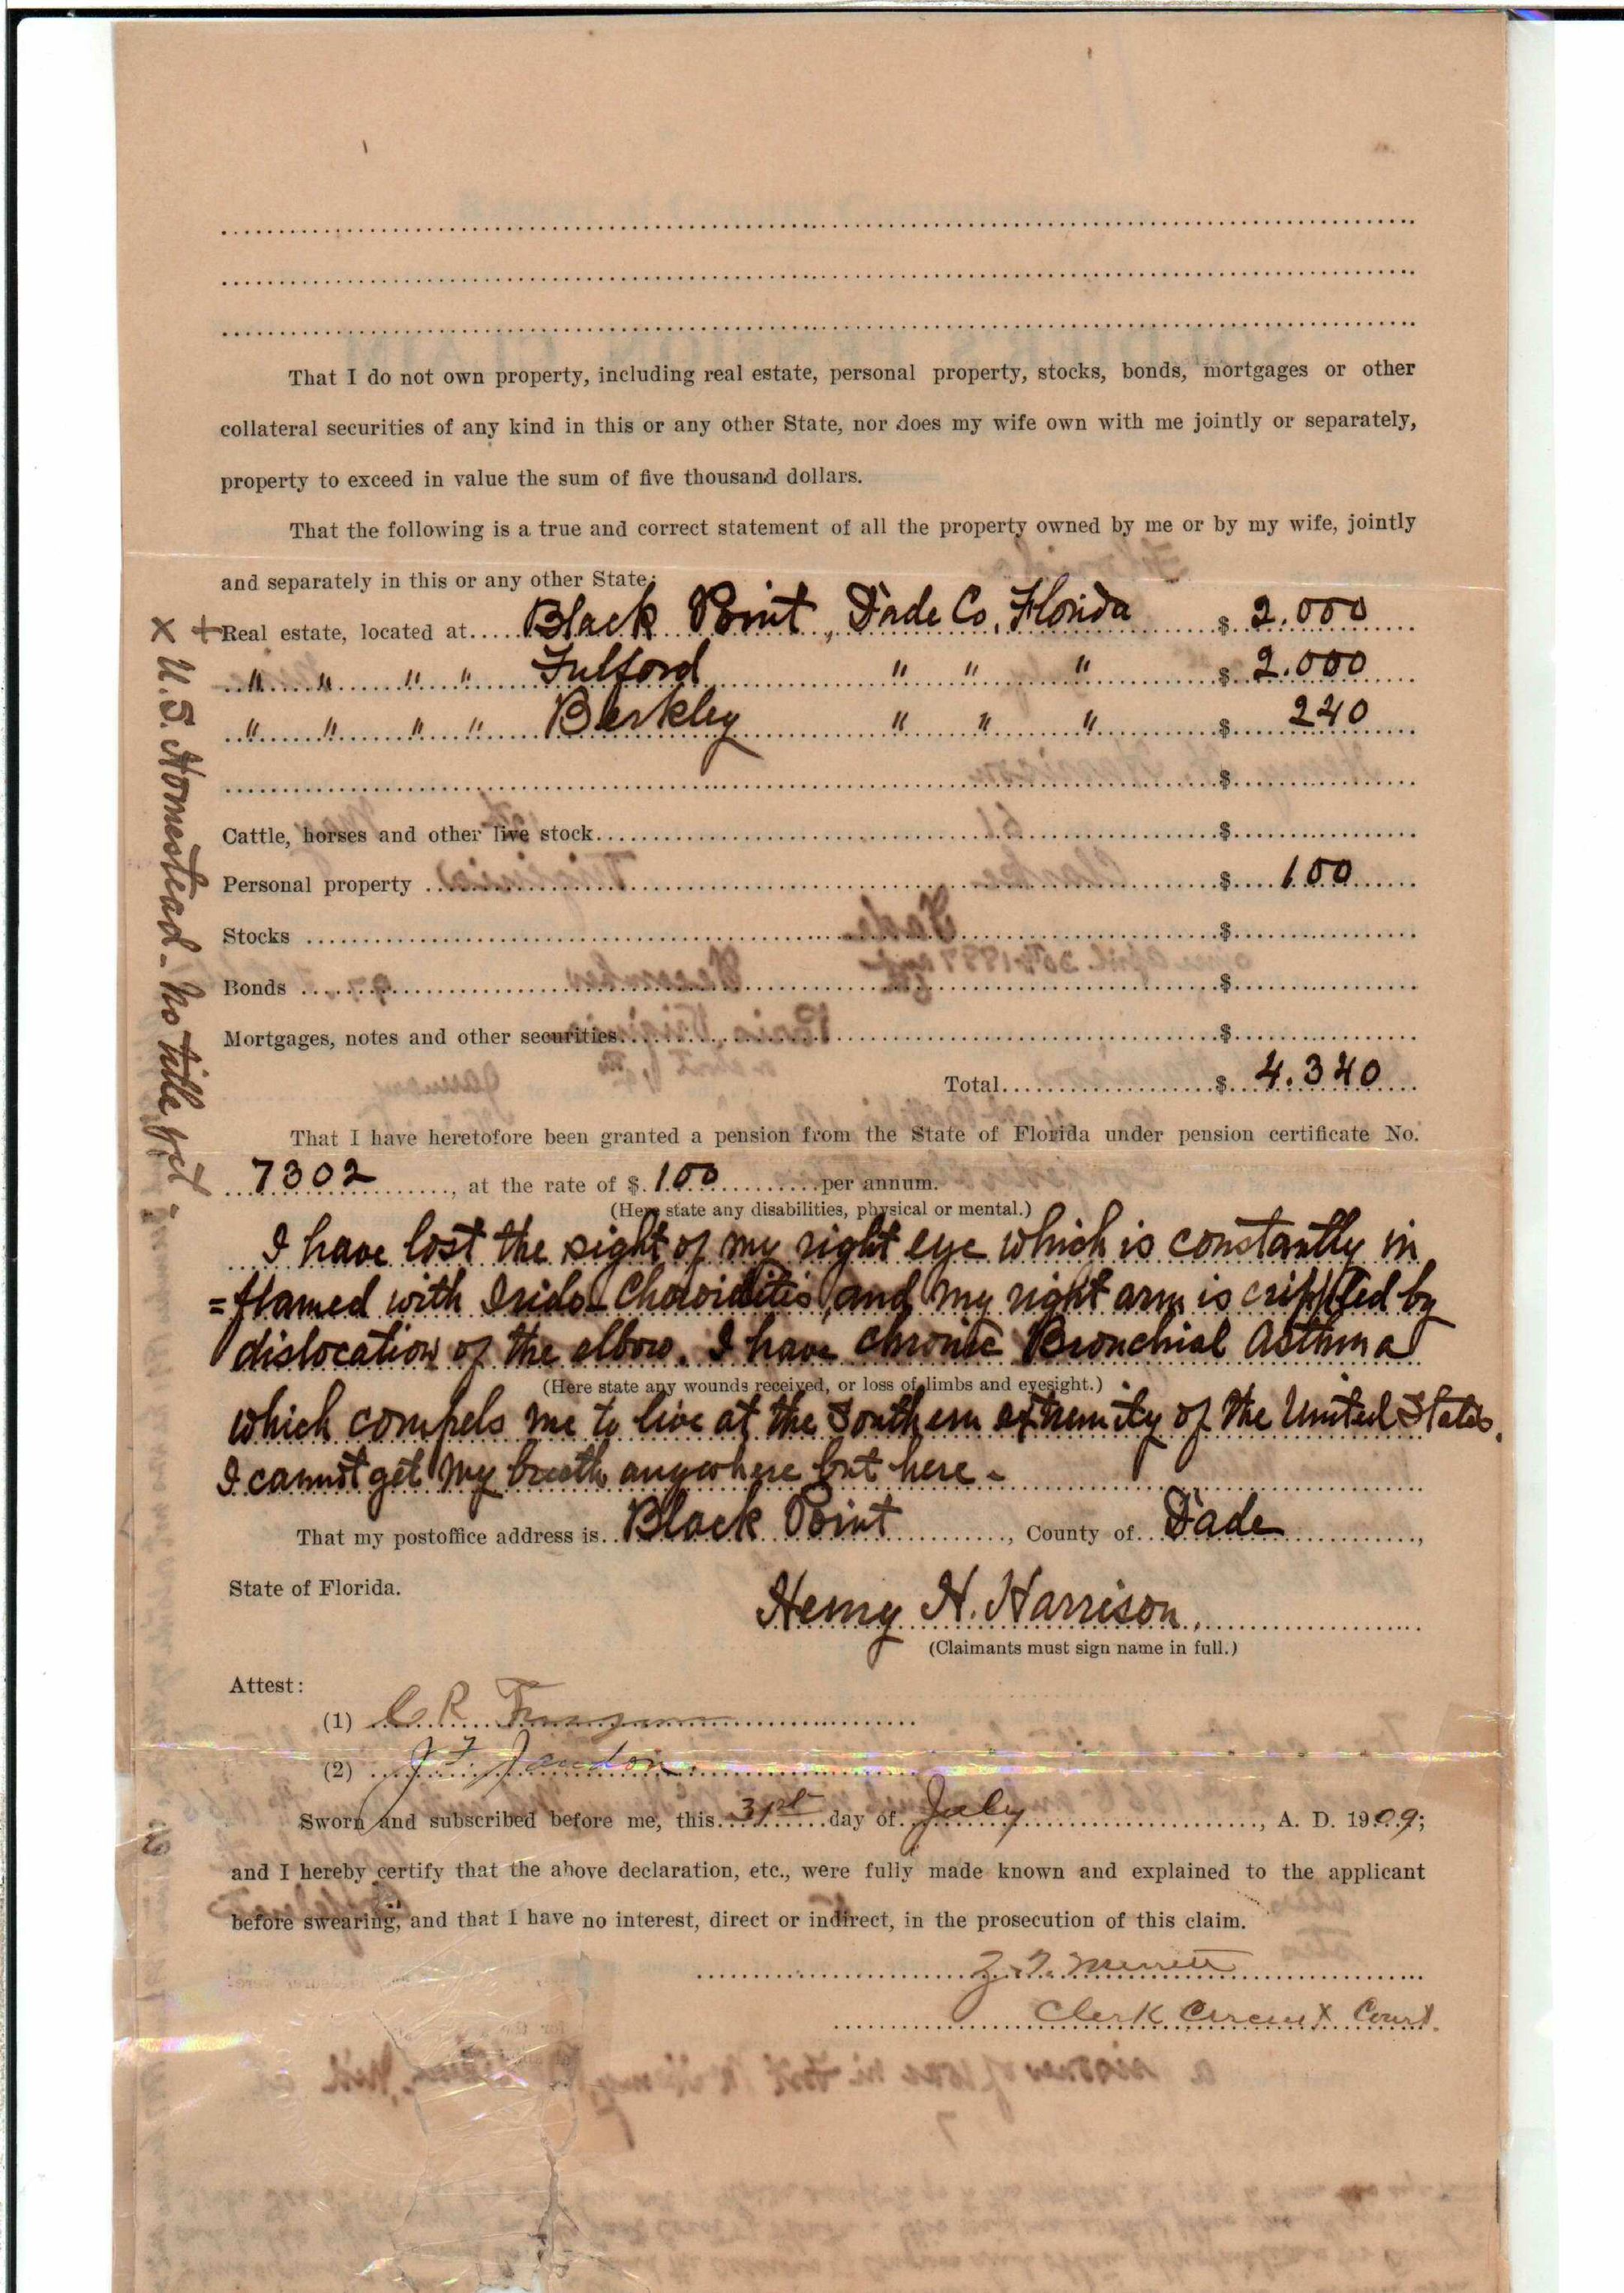 That I do not own property, including real estate, personal property, stocks, bonds, mortgages or other
collateral securities of any kind in this or any other State, nor does my wife own with me jointly or separately,
property to exceed in value the sum of five thousand dollars.
That the following is a true and correct statement of all the property owned by me or by my wife, jointly
and separately in this or any other State:
x + Real estate, located at Black Point, Dade Co, Florida $ 2.000
" " " " Fulford " " " $ 2.000
" " " " Berkley " " " $ 240
$
Cattle, horses and other live stock $
Personal property $ 100
Stocks $
Bonds $
Mortgages, notes and other securities $
Total $ 4.340
x U.S. Homestead - no title yet
That I have heretofore been granted a pension from the State of Florida under pension certificate No.
7302, at the rate of $ 100 per annum.
(Here state any disabilities, physical or mental.)
I have lost the sight of my right eye which is constantly in
=flamed with Irido-Choroiditis, and my right arm is crippled by
dislocation of the elbow. I have chronic Bronchial Asthma
(Here state any wounds received, or loss of limbs and eyesight.)
which compels me to live at the Southern extremity of the United States.
I cannot get my breath anywhere but here -
That my postoffice address is Black Point, County of Dade,
State of Florida.
Henry H. Harrison.
(Claimants must sign name in full.)
Attest:
(1) C R
(2) J. F. Jaudon.
Sworn and subscribed before me, this 31st day of July, A. D. 1909;
and I hereby certify that the above declaration, etc., were fully made known and explained to the applicant
before swearing, and that I have no interest, direct or indirect, in the prosecution of this claim.
Z. T. Merritt
Clerk Circuit Court.